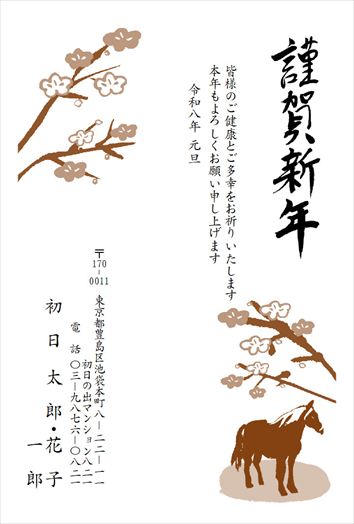 謹賀新年
皆様のご健康とご多幸をお祈りいたします
本年もよろしくお願い申し上げます
令和八年 元旦
〒170-0011
東京都豊島区池袋本町八-二二-一一
初日の出マンション八二一
電話 〇三-九八七六-〇八二一
初日 太郎・花子
一郎